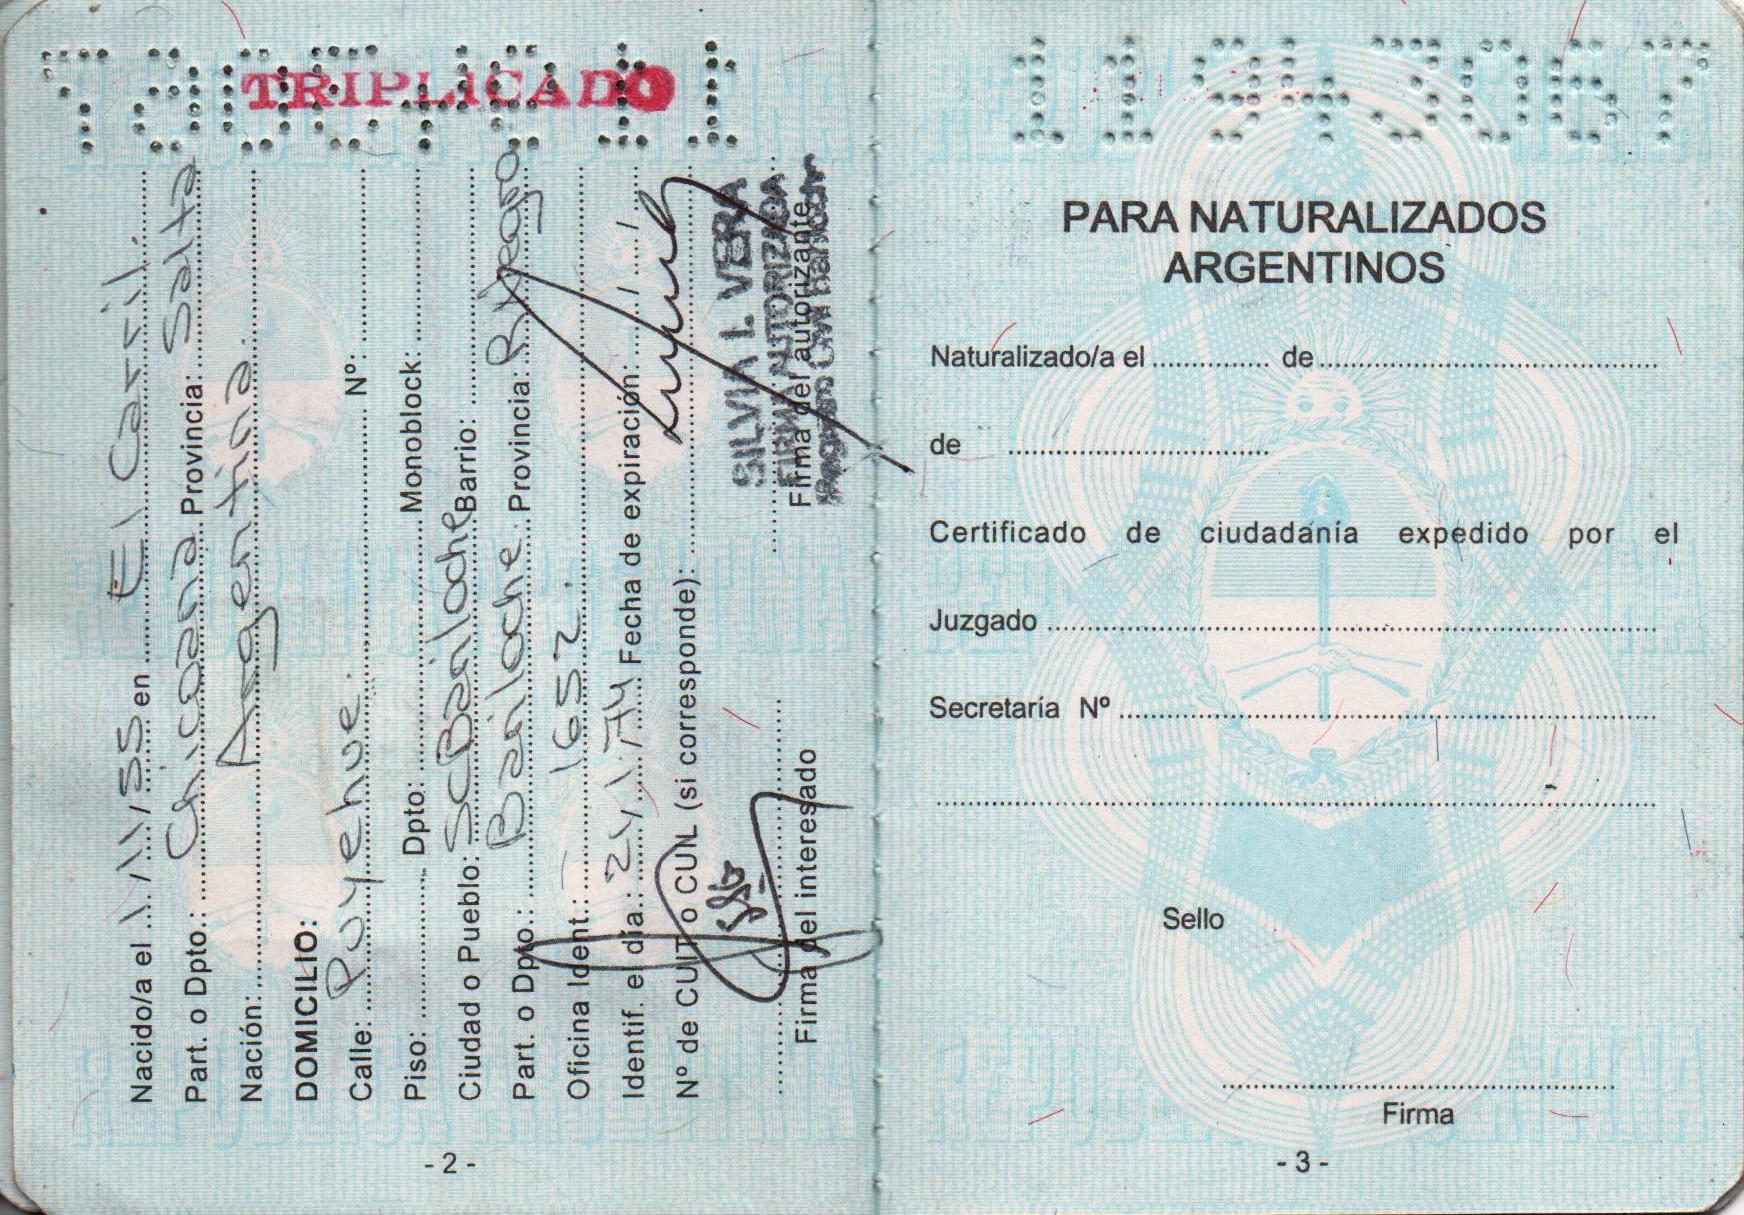 TRIPLICADO
Nacido/a el 1/11/55 en El Carril
Part. o Dpto.: Chicoana Provincia: Salta
Nación: Argentina.
DOMICILIO:
Calle: Puyehue. Nº:
Piso: Dpto: Monoblock:
Ciudad o Pueblo: SCBariloche Barrio:
Part. o Dpto.: Bariloche. Provincia: R. Negro
Oficina Ident.: 1652.
Identif. el día: 24/1/74 Fecha de expiración: / /
Nº de CUIT o CUIL (si corresponde):
SILVIA I. VERA
FIRMA AUTORIZADA
Firma del interesado Firma del autorizante
- 2 -
11943067
PARA NATURALIZADOS
ARGENTINOS
Naturalizado/a el de
de
Certificado de ciudadanía expedido por el
Juzgado
Secretaría Nº
Sello
Firma
- 3 -